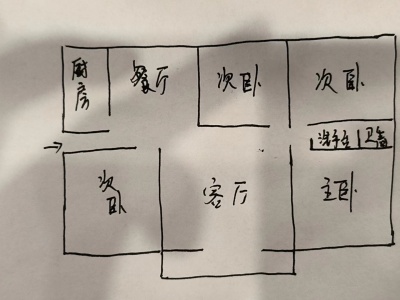 厨房
餐厅
次卧
次卧
洗手室
卫客
次卧
客厅
主卧